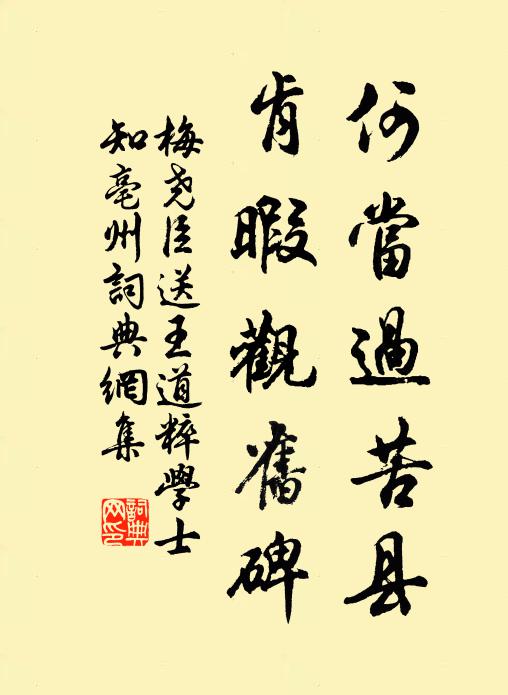 何當過苦县
肯暇觀舊碑
梅尧臣送王道粹學士
知亳州詞典網集
詞典
网印